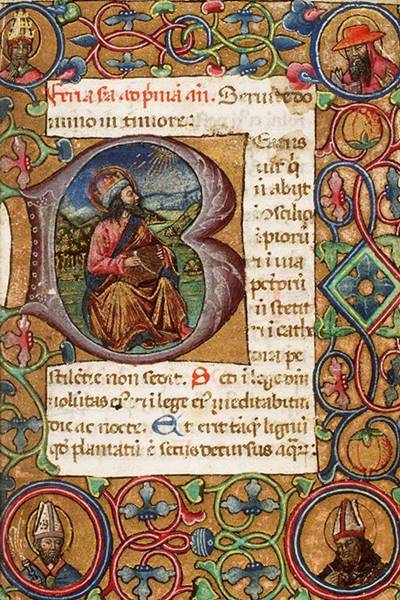 Feria sa ad primā añ. Seruite do
mino in timore:
B Eatus
uir q̄
ñ abijt
ī ɔsilio
īpiorū
⁊ ī uia
pctorū
ñ stetit
⁊ ī cath
dra pe
stilētie non sedit. Sed ī lege dñi
uolūtas eiꝰ: ⁊ ī lege eiꝰ meditabitur
die ac nocte. Et erit tāq̄ lignū
qd̄ plantatū ē secus decursus aqꝝ: